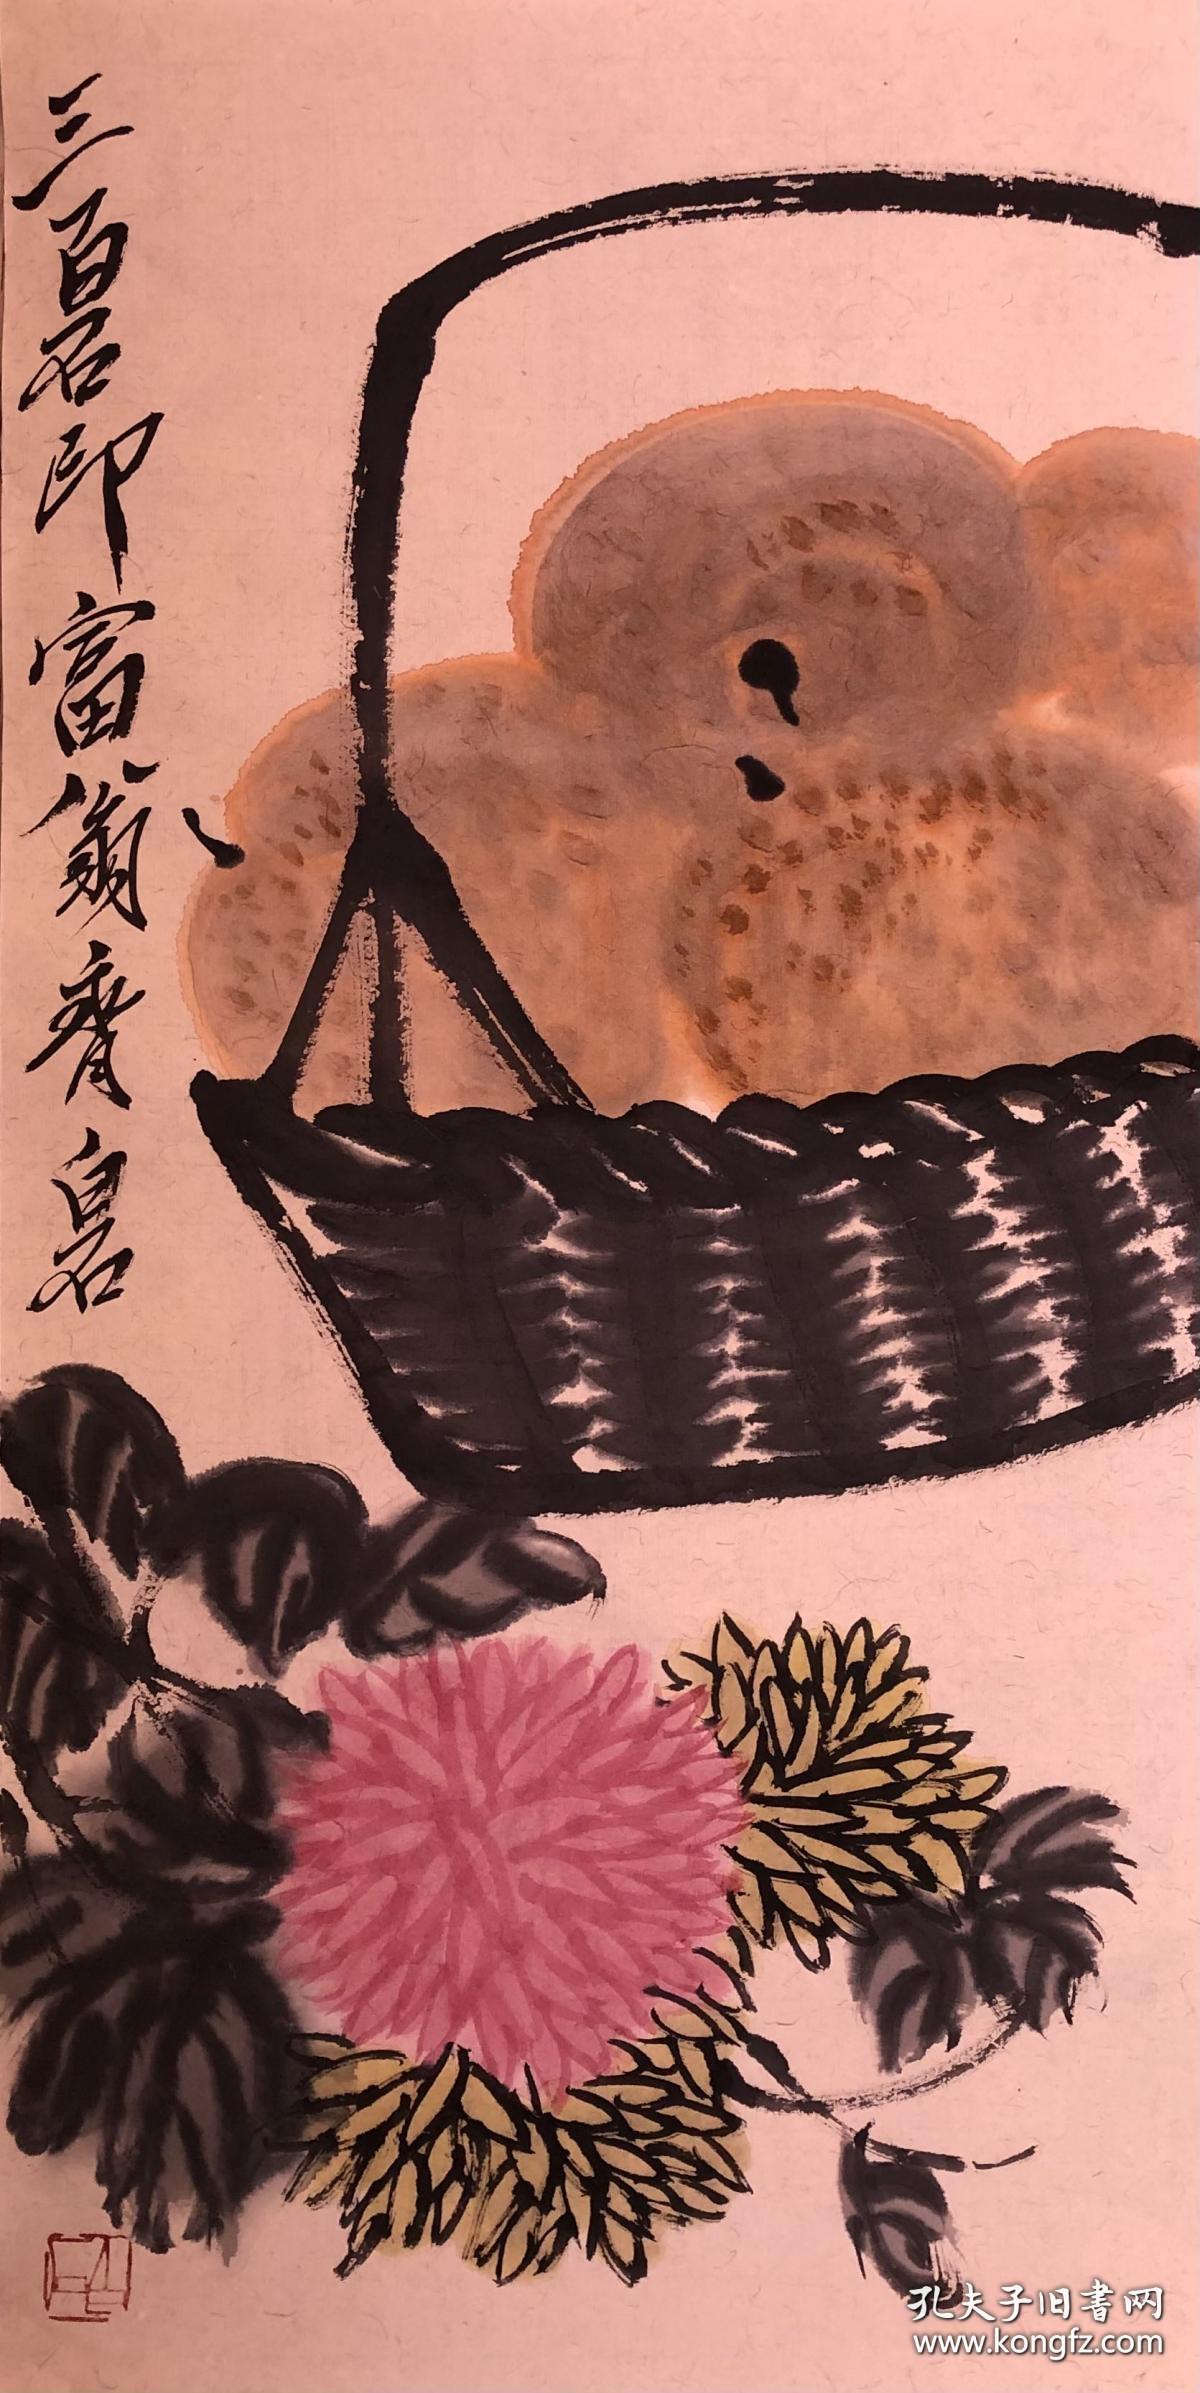 三百石印富翁齊白石
孔夫子旧書网
www.kongfz.com